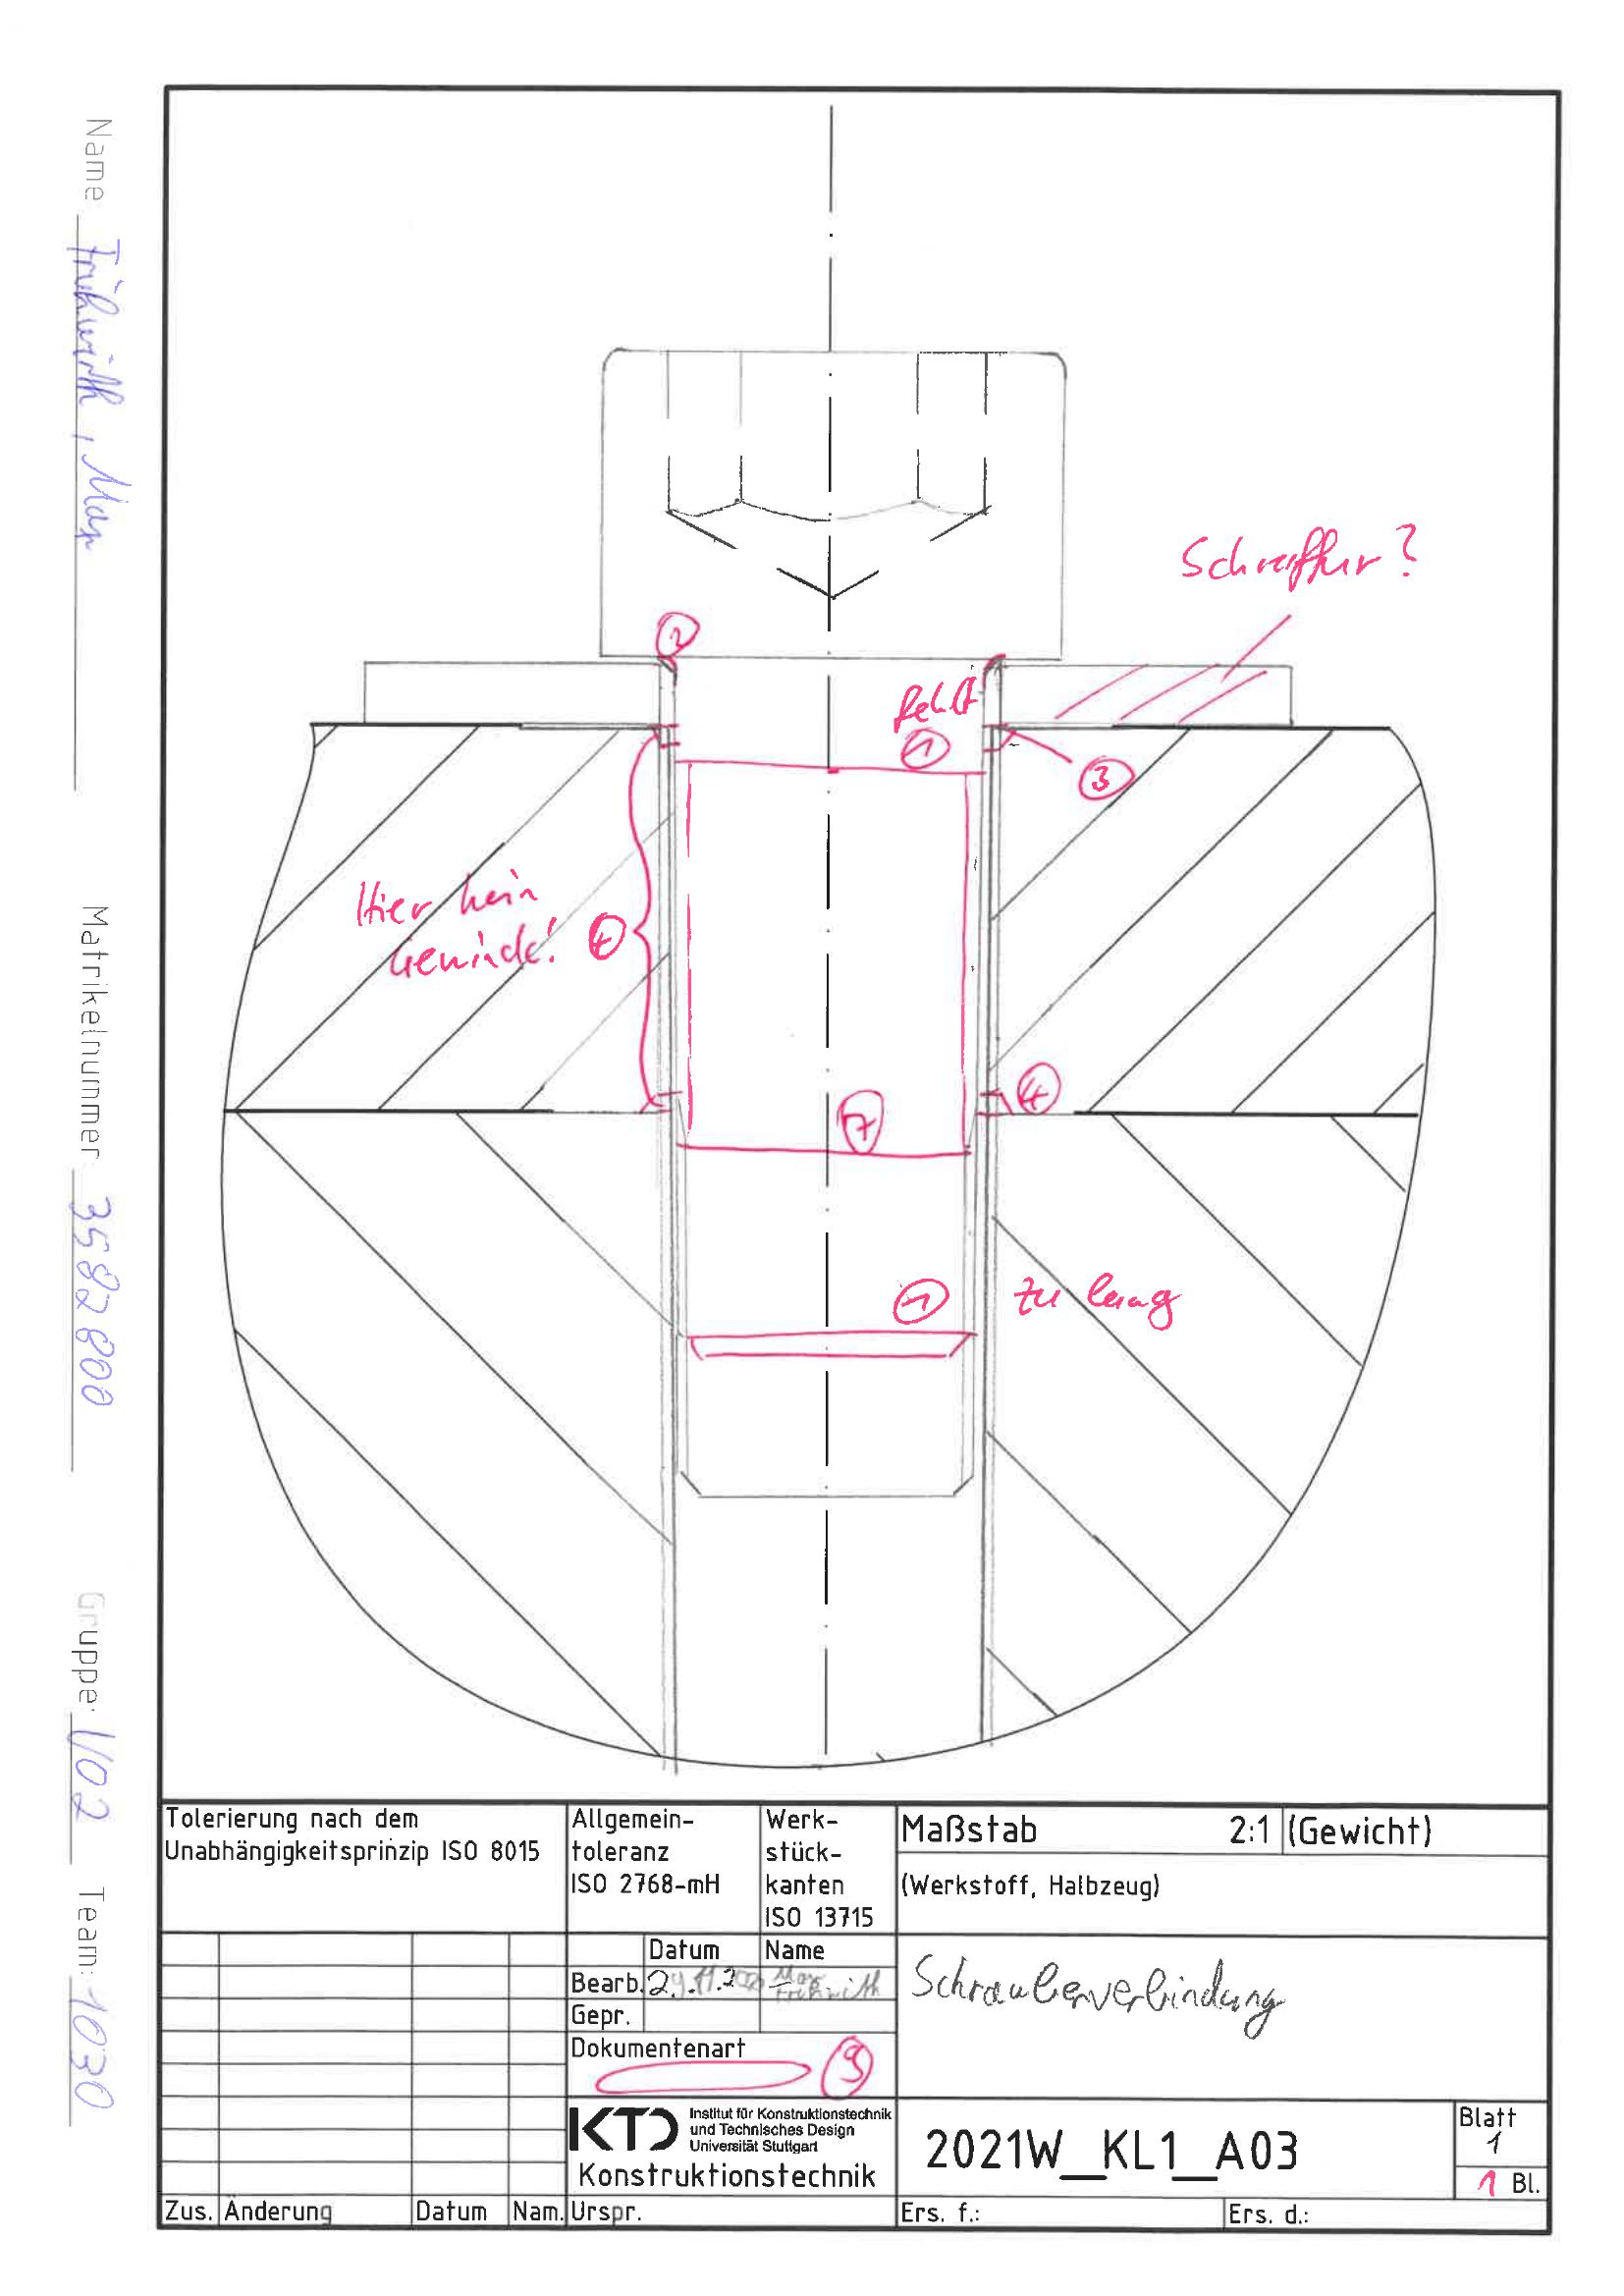 Name Frühwirth, Max
Matrikelnummer 3582800
Gruppe: V02 Team: 1030
Schraffur?
2
fehlt
1
3
Hier kein
Gewinde! 4
4
7
1 zu lang
Tolerierung nach dem
Unabhängigkeitsprinzip ISO 8015
Allgemein-
toleranz
ISO 2768-mH
Werk-
stück-
kanten
ISO 13715
Maßstab 2:1 (Gewicht)
(Werkstoff, Halbzeug)
Datum Name
Bearb. 29.11.20 Max
Frühwirth
Gepr.
Dokumentenart
9
Schraubenverbindung
KTD Institut für Konstruktionstechnik
und Technisches Design
Universität Stuttgart
Konstruktionstechnik
2021W_KL1_A03
Blatt
1
1 Bl.
Zus. Änderung Datum Nam. Urspr. Ers. f.: Ers. d.: